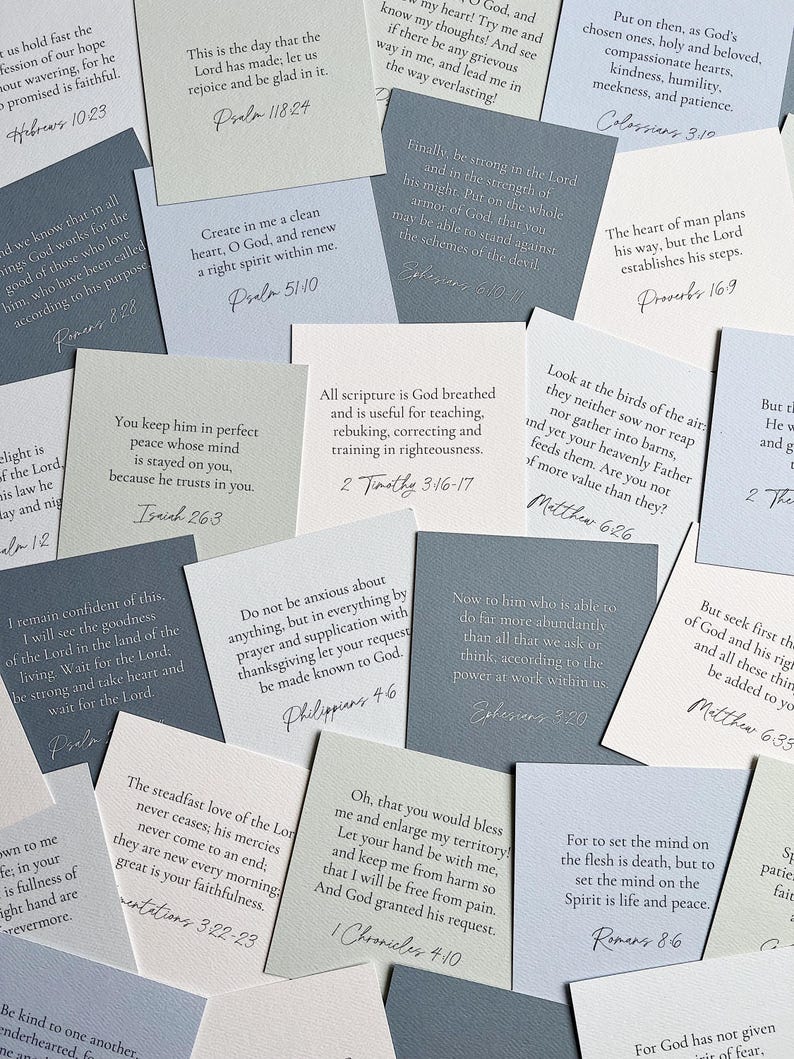 us hold fast the
of our hope
wavering, for he
promised is faithful.
Hebrews 10:23
This is the day that the
Lord has made; let us
rejoice and be glad in it.
Psalm 118:24
O God, and
my heart! Try me and
know my thoughts! And see
if there be any grievous
way in me, and lead me in
the way everlasting!
Put on then, as God's
chosen ones, holy and beloved,
compassionate hearts,
kindness, humility,
meekness, and patience.
Colossians 3:12
we know that in all
God works for the
good of those who love
him, who have been called
according to his purpose.
Romans 8:28
Create in me a clean
heart, O God, and renew
a right spirit within me.
Psalm 51:10
Finally, be strong in the Lord
and in the strength of
his might. Put on the whole
armor of God, that you
may be able to stand against
the schemes of the devil.
Ephesians 6:10-11
The heart of man plans
his way, but the Lord
establishes his steps.
Proverbs 16:9
is
of the Lord,
his law he
day and
1:2
You keep him in perfect
peace whose mind
is stayed on you,
because he trusts in you.
Isaiah 26:3
All scripture is God breathed
and is useful for teaching,
rebuking, correcting and
training in righteousness.
2 Timothy 3:16-17
Look at the birds of the air:
they neither sow nor reap
nor gather into barns,
and yet your heavenly Father
feeds them. Are you not
of more value than they?
Matthew 6:26
But
He
and
2
I remain confident of this,
I will see the goodness
of the Lord in the land of the
living. Wait for the Lord;
be strong and take heart and
wait for the Lord.
Psalm
Do not be anxious about
anything, but in everything by
prayer and supplication with
thanksgiving let your request
be made known to God.
Philippians 4:6
Now to him who is able to
do far more abundantly
than all that we ask or
think, according to the
power at work within us.
Ephesians 3:20
But seek first
of God and his
and all these
be added to
Matthew 6:33
to me
in your
is fullness of
hand are
The steadfast love of the
never ceases; his mercies
never come to an end;
they are new every morning;
great is your faithfulness.
3:22-23
Oh, that you would bless
me and enlarge my territory!
Let your hand be with me,
and keep me from harm so
that I will be free from pain.
And God granted his request.
1 Chronicles 4:10
For to set the mind on
the flesh is death, but to
set the mind on the
Spirit is life and peace.
Romans 8:6
Be kind to one another,
For God has not given
of fear,